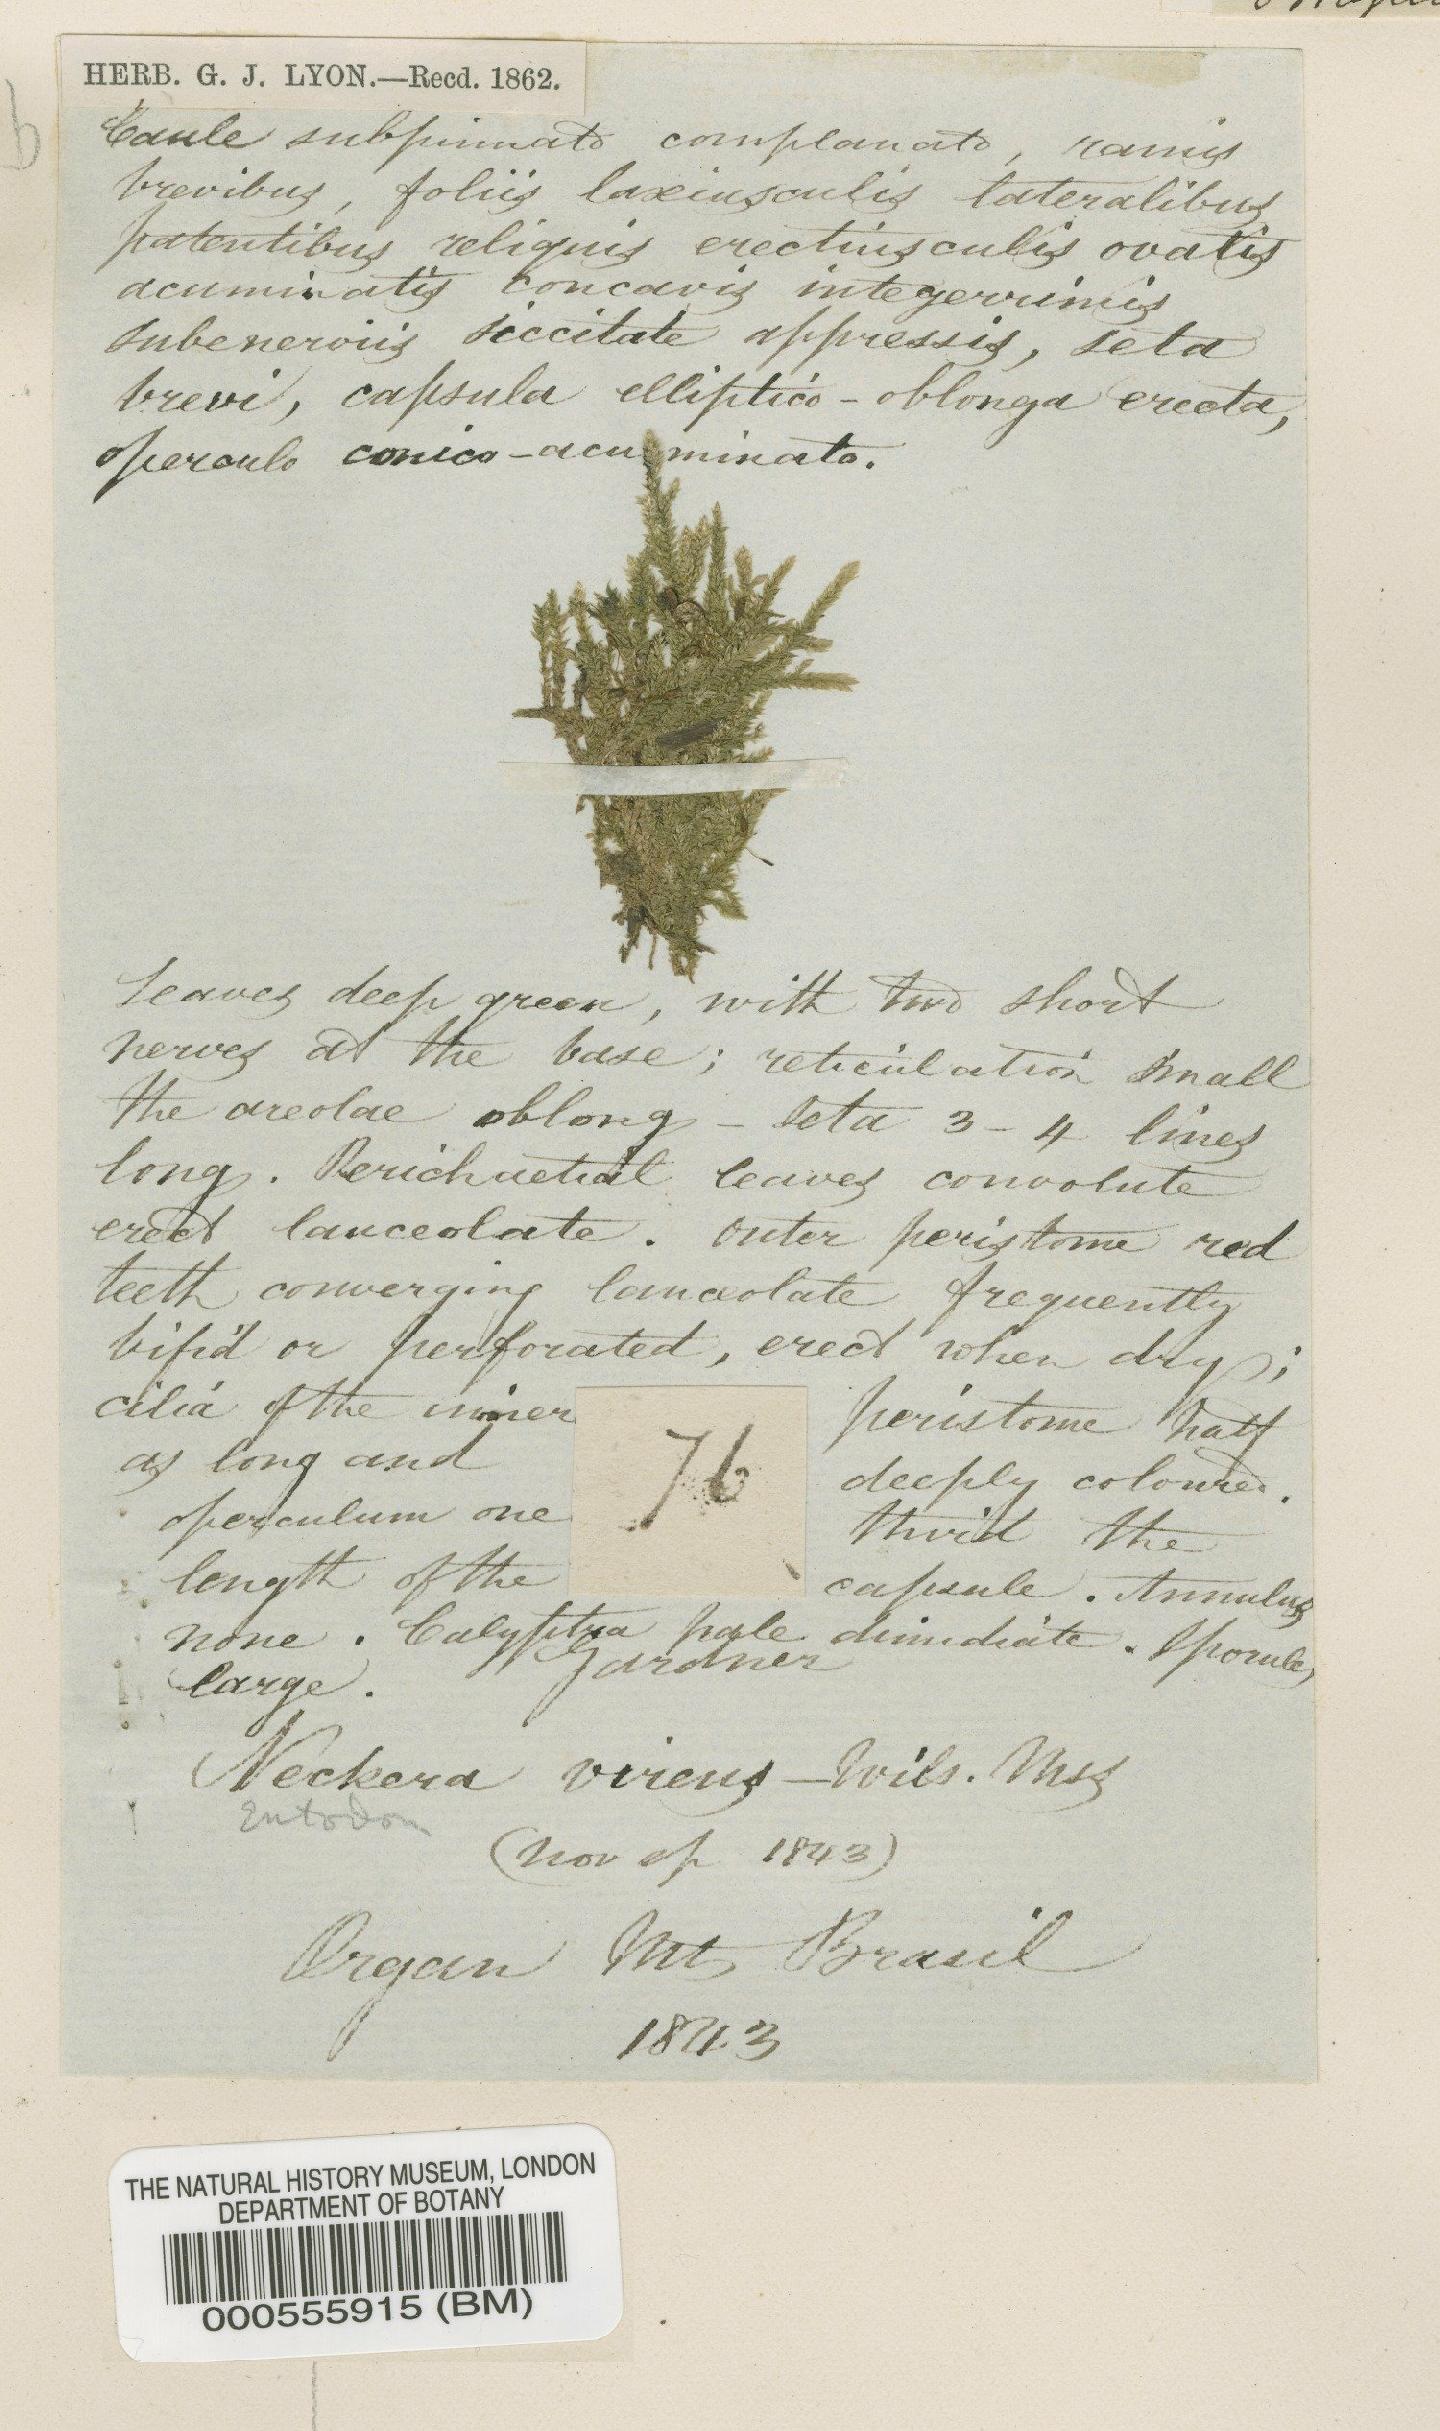 HERB. G. J. LYON.—Recd. 1862.
Caule subpinnato complanato, ramis
brevibus, foliis laxiusculis lateralibus
patentibus reliquis erectiusculis ovatis
acuminatis concavis integerrimis
subenerviis siccitate appressis, seta
brevi, capsula elliptico-oblonga erecta,
operculo conico-acuminato.
Leaves deep green, with two short
nerves at the base; reticulation small
the areolae oblong - Seta 3-4 lines
long. Perichaetial leaves convolute
erect lanceolate. Outer peristome red
teeth converging lanceolate frequently
bifid or perforated, erect when dry;
cilia of the inner peristome half
as long and deeply coloured.
operculum one third the
length of the capsule. Annulus
none. Calyptra pale dimidiate. Sporules
large. Gardner
76
Neckera virens - Wils. Mss
Entodon
(Nov sp 1843)
Organ Mts Brasil
1843
THE NATURAL HISTORY MUSEUM, LONDON
DEPARTMENT OF BOTANY
000555915 (BM)